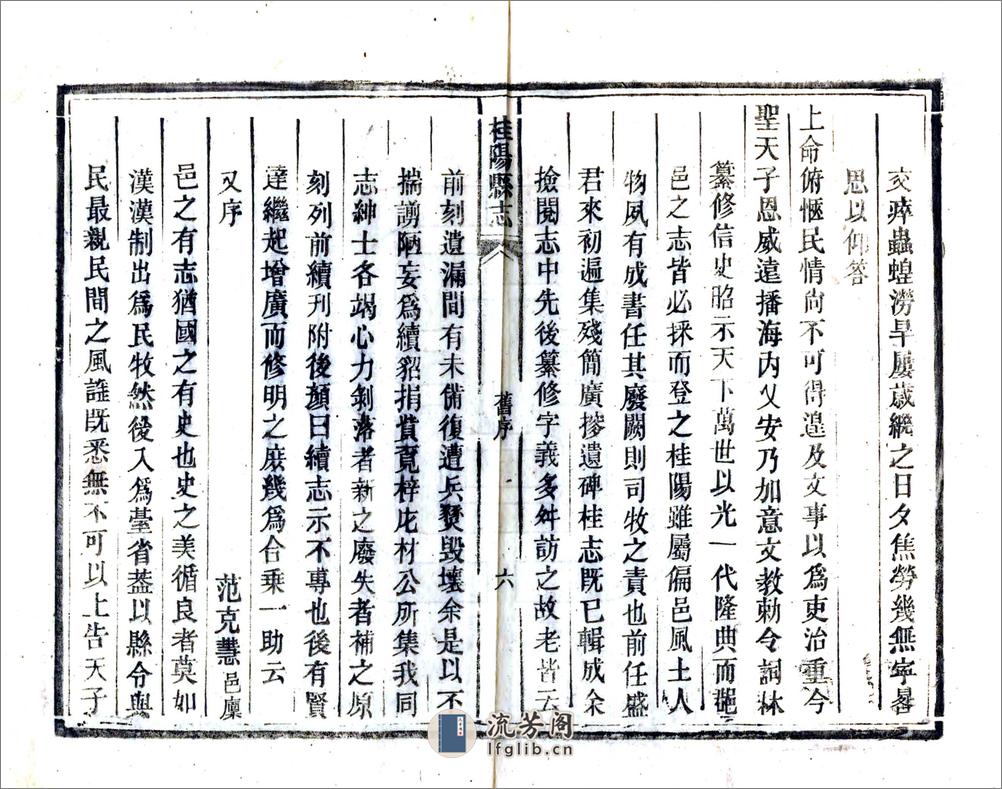 交瘁蟲蝗澇旱屢歲繼之日夕焦勞幾無寧晷
思以仰答
上命俯愜民情尚不可得遑及文事以爲吏治重今
聖天子恩威遠播海内乂安乃加意文教勅令詞林
纂修信史昭示天下萬世以光一代隆典而蕞
邑之志皆必採而登之桂陽雖屬偏邑風土人
物夙有成書任其廢闕則司牧之責也前任盛
君來初遍集殘簡廣搜遺碑桂志既已輯成余
撿閱志中先後纂修字義多舛訪之故老皆云
桂陽縣志
舊序
六
前刻遺漏間有未備復遭兵燹毀壞余是以不
揣謭陋妄爲續貂捐貲竟梓庀材公所集我同
志紳士各竭心力剝落者新之廢失者補之原
刻列前續刊附後顏曰續志示不專也後有賢
達繼起增廣而修明之庶幾爲合乘一助云
又序
范克慧邑廩
邑之有志猶國之有史也史之美循良者莫如
漢漢制出爲民牧然後入爲臺省葢以縣令與
民最親民間之風謡既悉無不可以上告天子
流芳阁
lfglib.cn